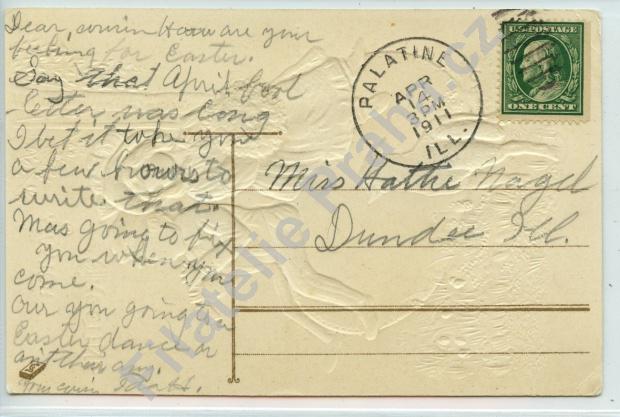 Dear, cousin How are you
feeling for Easter.
Say that April fool
letter was long
I bet it toke you
a few hours to
write that.
Mas going to fix
you when you
come.
Our you going to a
Easter dance or
ant their any.
Your cousin
U.S. POSTAGE
ONE CENT
PALATINE
APR
14
3 PM
1911
ILL.
Miss Hattie Nagel
Dundee Ill.
Filatelie Praha.cz